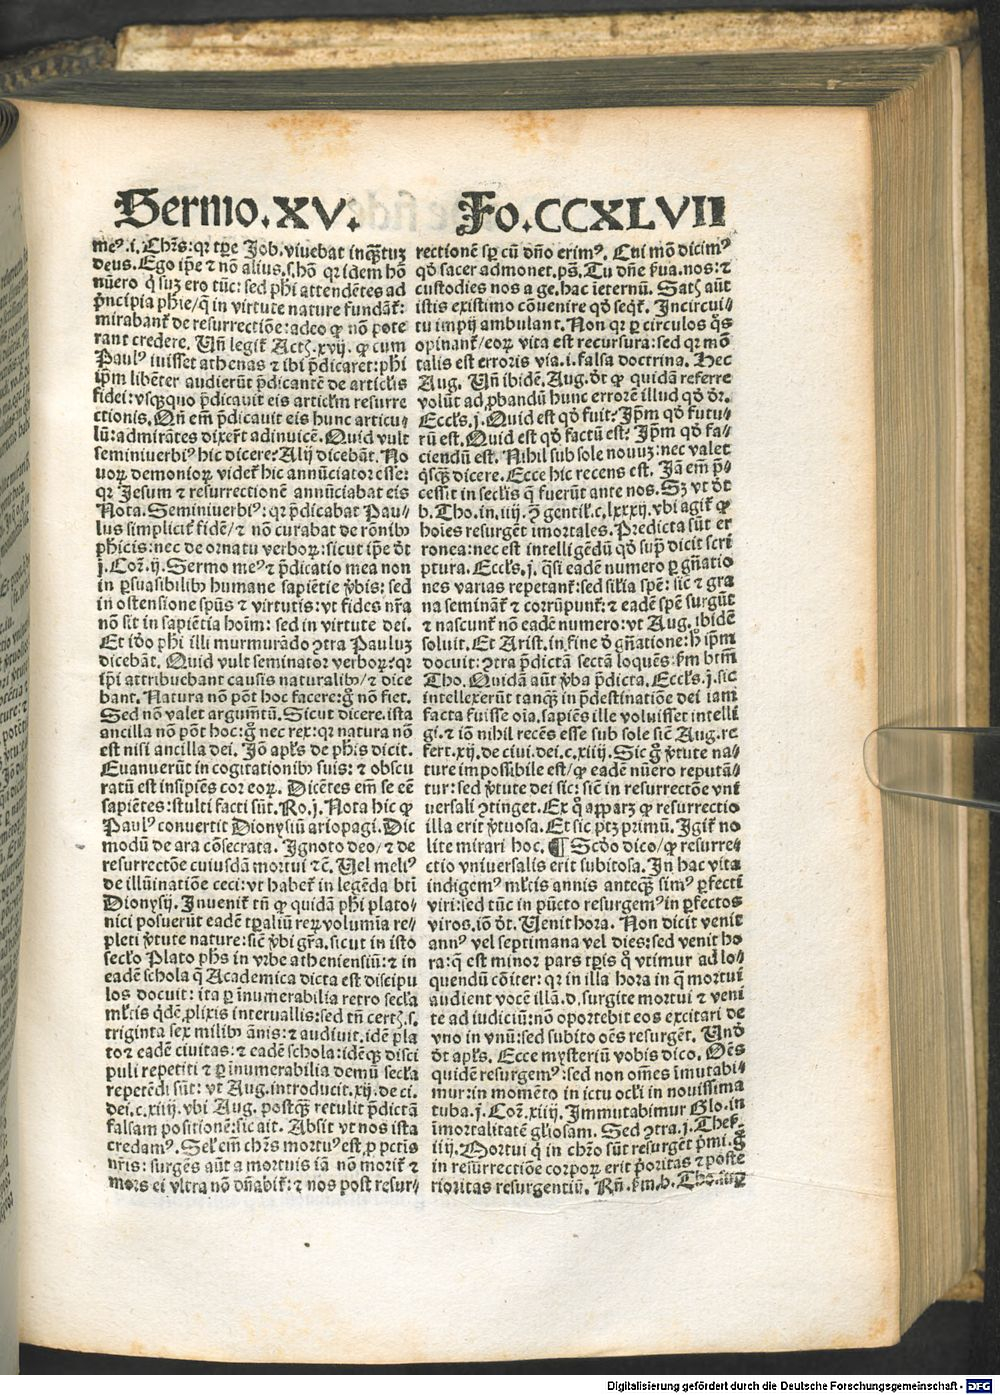 Sermo.XV.
Fo.CCXLVII
meꝰ.i. Chr̃s: qꝛ tp̃e Job.viuebat inq̃ꝫtuꝫ
deus. Ego ip̃e ⁊ nõ alius.s.hõ qꝛ idem hõ
nũero q̃ suꝫ ero tũc: sed ph̃i attendẽtes ad
p̃ncipia ph̃ie/q̃ in virtute nature fundãt̃:
mirabant̃ de resurrectiõe: adeo ꝙ nõ pote
rant credere. Uñ legit̃ Act̃.xvij. ꝙ cum
Paulꝰ iuisset athenas ⁊ ibi p̃dicaret: ph̃i
ip̃m libẽter audierũt p̃dicantẽ de articlis
fidei: vsq̃quo p̃dicauit eis articlm resurre
ctionis. Qñ em̃ p̃dicauit eis hunc articu⸗
lũ: admirãtes dixer̃t adinuicẽ. Quid vult
seminiuerbiꝰ hic dicere? Alij dicebãt. No
uoꝝ demonioꝝ videt̃ hic annũciator esse:
qꝛ Jesum ⁊ resurrectionẽ annũciabat eis
Nota. Seminiuerbiꝰ: qꝛ p̃dicabat Pau⸗
lus simplicit̃ fidẽ/ ⁊ nõ curabat de rõnibꝰ
ph̃icis: nec de ornatu verboꝝ: sicut ip̃e d̃t
j. Coꝛ̃.ij. Sermo meꝰ ⁊ p̃dicatio mea non
in ꝑsuasibilibꝰ humane sapiẽtie ṽbis: sed
in ostensione spũs ⁊ virtutis: vt fides nr̃a
nõ sit in sapiẽtia hoĩm: sed in virtute dei.
Et iõo ph̃i illi murmurãdo ꝯtra Pauluꝫ
dicebãt. Quid vult seminator verboꝝ? qꝛ
ip̃i attribuebant causis naturalibꝰ/ ⁊ dice
bant. Natura nõ põt hoc facere: g̃ nõ fiet.
Sed nõ valet argumt̃ũ. Sicut dicere. ista
ancilla nõ põt hoc: g̃ nec rex: qꝛ natura nõ
est nisi ancilla dei. Jõ ap̃ls de ph̃is dicit.
Euanuerũt in cogitationibꝰ suis: ⁊ obscu
ratũ est insipiẽs cor eoꝝ. Dicẽtes em̃ se eẽ
sapiẽtes: stulti facti sũt. Ro.j. Nota hic ꝙ
Paulꝰ conuertit Dionysiũ ariopagi. Dic
modũ de ara cõsecrata. Ignoto deo/ ⁊ de
resurrectõe cuiusdã mortui ⁊c̃. Uel meliꝰ
de illũinatiõe ceci: vt habet̃ in legẽda bt̃i
Dionysij. Inuenit̃ tñ ꝙ quidã ph̃i plato⸗
nici posuerũt eadẽ tꝑaliũ reꝝ volumĩa re⸗
pleti ṽtute nature: sic̃ ṽbi gr̃a. sicut in isto
seclo Plato ph̃s in vrbe atheniensiũ: ⁊ in
eadẽ schola q̃ Academica dicta est discipu
los docuit: ita ꝑ innumerabilia retro secla
ml̃tis q̃dẽ ꝓlixis interuallis: sed tñ cert̃.s.
triginta sex milibꝰ ãnis: ⁊ audiuit. idẽ pla
to⁊ eadẽ ciuitas: ⁊ eadẽ schola: idẽq̃ disci
puli repetiti ⁊ ꝑ innumerabilia demũ secla
repetẽdi sũt: vt Aug. introducit. xij. de ci.
dei.c.xiiij. vbi Aug. postq̃ retulit p̃dictã
falsam positionẽ: sic ait. Absit vt nos ista
credamꝰ. Sel̃ em̃ chr̃s mortuꝰ est, ꝓ pctĩs
nr̃is: surgẽs aũt a mortuis iã nõ morit̃ ⁊
mors ei vltra nõ dñabit̃: ⁊ nos post resur⸗
rectionẽ sꝑ cũ dño erimꝰ. Cui mõ dicimꝰ
qd̃ sacer admonet. ps̃. Tu dñe ẜua. nos: ⁊
custodies nos a ge. hac ĩeternũ. Satꝫ aũt
istis existimo cõuenire qd̃ seqt̃. Incircui⸗
tu impij ambulant. Non qꝛ ꝑ circulos q̃s
opinant̃/ eoꝝ vita est recursura: sed qꝛ mõ
talis est erroris via.i. falsa doctrina. Hec
Aug. Uñ ibidẽ. Aug. d̃t ꝙ quidã referre
volũt ad ꝓbandũ hunc errorẽ illud qd̃ d̃r.
Eccl̃s.j. Quid est qd̃ fuit? Ip̃m qd̃ futu⸗
rũ est. Quid est qd̃ factũ est? Ip̃m qd̃ fa⸗
ciendũ est. Nihil sub sole nouuꝫ: nec valet
q̃sq̃ dicere. Ecce hic recens est. Jã em̃ p̃⸗
cessit in seclis q̃ fuerũt ante nos. Sꝫ vt d̃t
b. Tho. in.iiij. ꝯ̃ gentil̃.c.lxxxij. vbi agit̃ ꝙ
hoĩes resurgẽt imortales. Predicta sũt er
ronea: nec est intelligẽdũ qd̃ sup̃ dicit scri
ptura. Eccl̃s.j. q̃si eadẽ numero ꝑ gñatio
nes varias repetant̃: sed sil̃ia spẽ: sic̃ ⁊ gra
na seminãt̃ ⁊ corrũpunt̃: ⁊ eadẽ spẽ surgũt
⁊ nascunt̃ nõ eadẽ numero: vt Aug. ibidẽ
soluit. Et Arist. in fine d̃ gñatione: h̃ ip̃m
docuit: ꝯtra p̃dictã sectã loquẽs: ẜm btm̃
Tho. Quidã aũt ṽba p̃dicta. Eccl̃s.j. sic
intellexerũt tanq̃ in p̃destinatiõe dei iam
facta fuisse oĩa. sapiẽs ille voluisset intelli
gi. ⁊ iõ nihil recẽs esse sub sole sic̃ Aug. re
fert. xij. de ciui. dei.c.xiiij. Sic g̃ ṽtute na⸗
ture impossibile est/ ꝙ eadẽ nũero reputã⸗
tur: sed ṽtute dei sic: sic̃ in resurrectõe vni
uersali ꝯtinget. Ex q̃ apparꝫ ꝙ resurrectio
illa erit ṽtuosa. Et sic ptꝫ primũ. Igit̃ no
lite mirari hoc. ¶ Scdõ dico/ ꝙ resurre⸗
ctio vniuersalis erit subitosa. In hac vita
indigemꝰ ml̃tis annis anteq̃ simꝰ ꝑfecti
viri: sed tũc in pũcto resurgemꝰ in ꝑfectos
viros. iõ d̃t. Uenit hora. Non dicit venit
annꝰ vel septimana vel dies: sed venit ho
ra: q̃ est minor pars tꝑis q̃ vtimur ad lo⸗
quendũ cõiter: qꝛ in illa hora in q̃ mortui
audient vocẽ illã. d. surgite mortui ⁊ veni
te ad iudiciũ: nõ oportebit eos excitari de
vno in vnũ: sed subito oẽs resurgẽt. Und̃
d̃t ap̃ls. Ecce mysteriũ vobis dico. Oẽs
quidẽ resurgemꝰ: sed non om̃es ĩmutabi⸗
mur: in momẽto in ictu ocl̃i in nouissima
tuba. j. Coꝛ̃.xiiij. Immutabimur Glo. in
ĩmortalitatẽ gl̃iosam. Sed ꝯtra. j. Thes̃.
iiij. Mortui q̃ in chr̃o sũt resurgẽt p̃mi. g̃
in resurrectiõe corpoꝝ erit p̃oritas ⁊ poste
rioritas resurgentiũ. Rñ. ẜm. b. Tho.
Digitalisierung gefördert durch die Deutsche Forschungsgemeinschaft - DFG